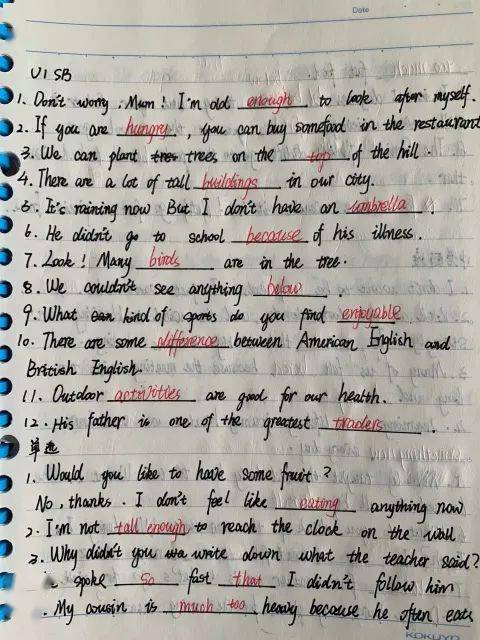 Date
U1 SB
1. Don't worry, Mum! I'm old enough to look after myself.
2. If you are hungry, you can buy somefood in the restaurant
3. We can plant trees on the top of the hill.
4. There are a lot of tall buildings in our city.
5. It's raining now But I don't have an umbrella.
6. He didn't go to school because of his illness.
7. Look! Many birds are in the tree.
8. We couldn't see anything below.
9. What kind of sports do you find enjoyable
10. There are some difference between American English and
British English.
11. Outdoor activities are good for our health.
12. His father is one of the greatest traders.
单选
1. Would you like to have some fruit?
No, thanks. I don't feel like eating anything now
2. I'm not tall enough to reach the clock on the wall
3. Why didn't you write down what the teacher said?
spoke so fast that I didn't follow him
. My cousin is much too heavy because he often eats
KOKUYO